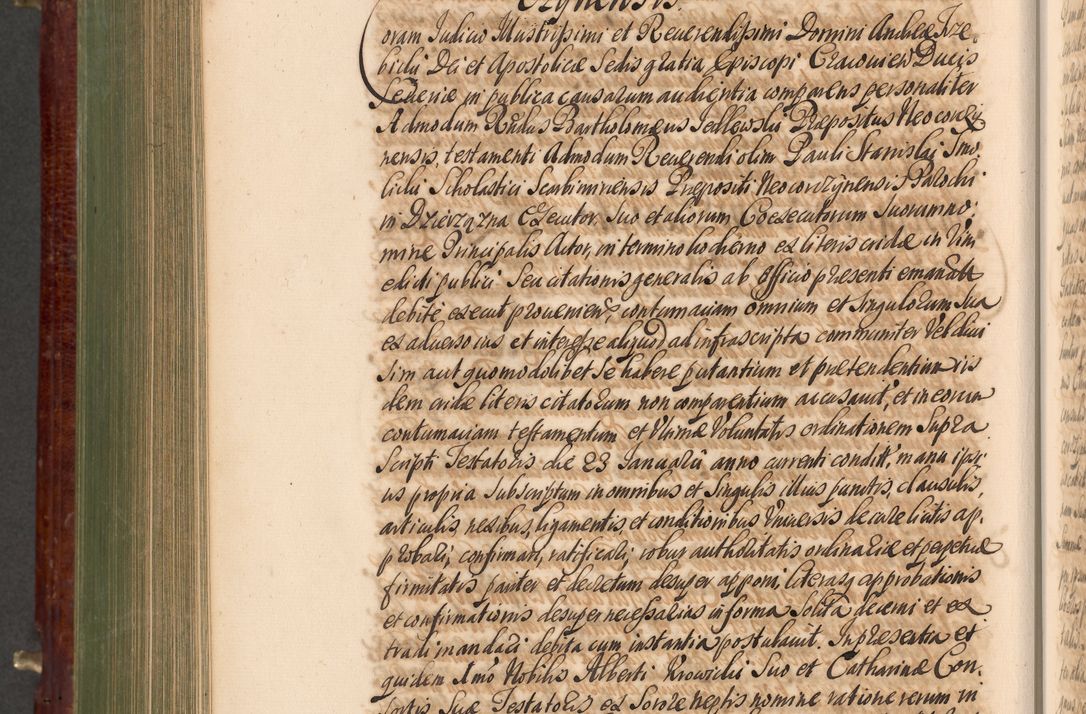 czynensis.
oram Iudicio Illustrissimi et Reuerendissimi Domini Andreæ Trze-
bicki Dei et Apostolicæ Sedis gratia Episcopi Cracouien Ducis
Seueriæ in publica causarum audientia comparens personaliter
Admodum Rndus Bartholomæus Jedlewski Præpositus Neocorczy
nensis, testamenti Admodum Reuerendi olim Pauli Stanislai Smo-
licki Scholastici Scarbimiriensis Præpositi Neocorczynensis Parochi
in Dzierzązna Executor, Suo et aliorum Coexecutorum Suorum no-
mine Principalis Actor, in termino hodierno ex literis cridæ in Vim
edicti publici Seu citationis generalis ab Officio præsenti emanatæ
debitè execut prouenien, contumaciam omnium et Singulorum Sua
ex aduerso ius et interesse aliquod ad infrascripta communiter Vel diui
sim aut quomodolibet Se habere putantium et prætendentium iis
dem cridæ literis citatorum non comparentium accusauit, et in eorum
contumaciam testamentum et Vltimæ Voluntatis ordinationem Supra
Scripti Testatoris die 23 Januarii anno currenti condit, manu ipsi-
us propria Subscriptum in omnibus et Singulis illius punctis, clausulis,
articulis, nexibus, ligamentis et conditionibus Vniuersis decore licitis ap-
probari, confirmari, ratificari, robur authoritatis ordinariæ et perpetuæ
firmitatis pariter et decretum desuper apponi, literasq approbationis
et confirmationis desuper necessarias in forma Solita decerni et ex
tradi mandari debita cum instantia postulauit. In præsentia et
quidem Imo Nobilis Alberti Wrowicki Suo et Catharinæ Con-
sortis Suæ Testatoris ex Sorore neptis nomine ratione rerum in